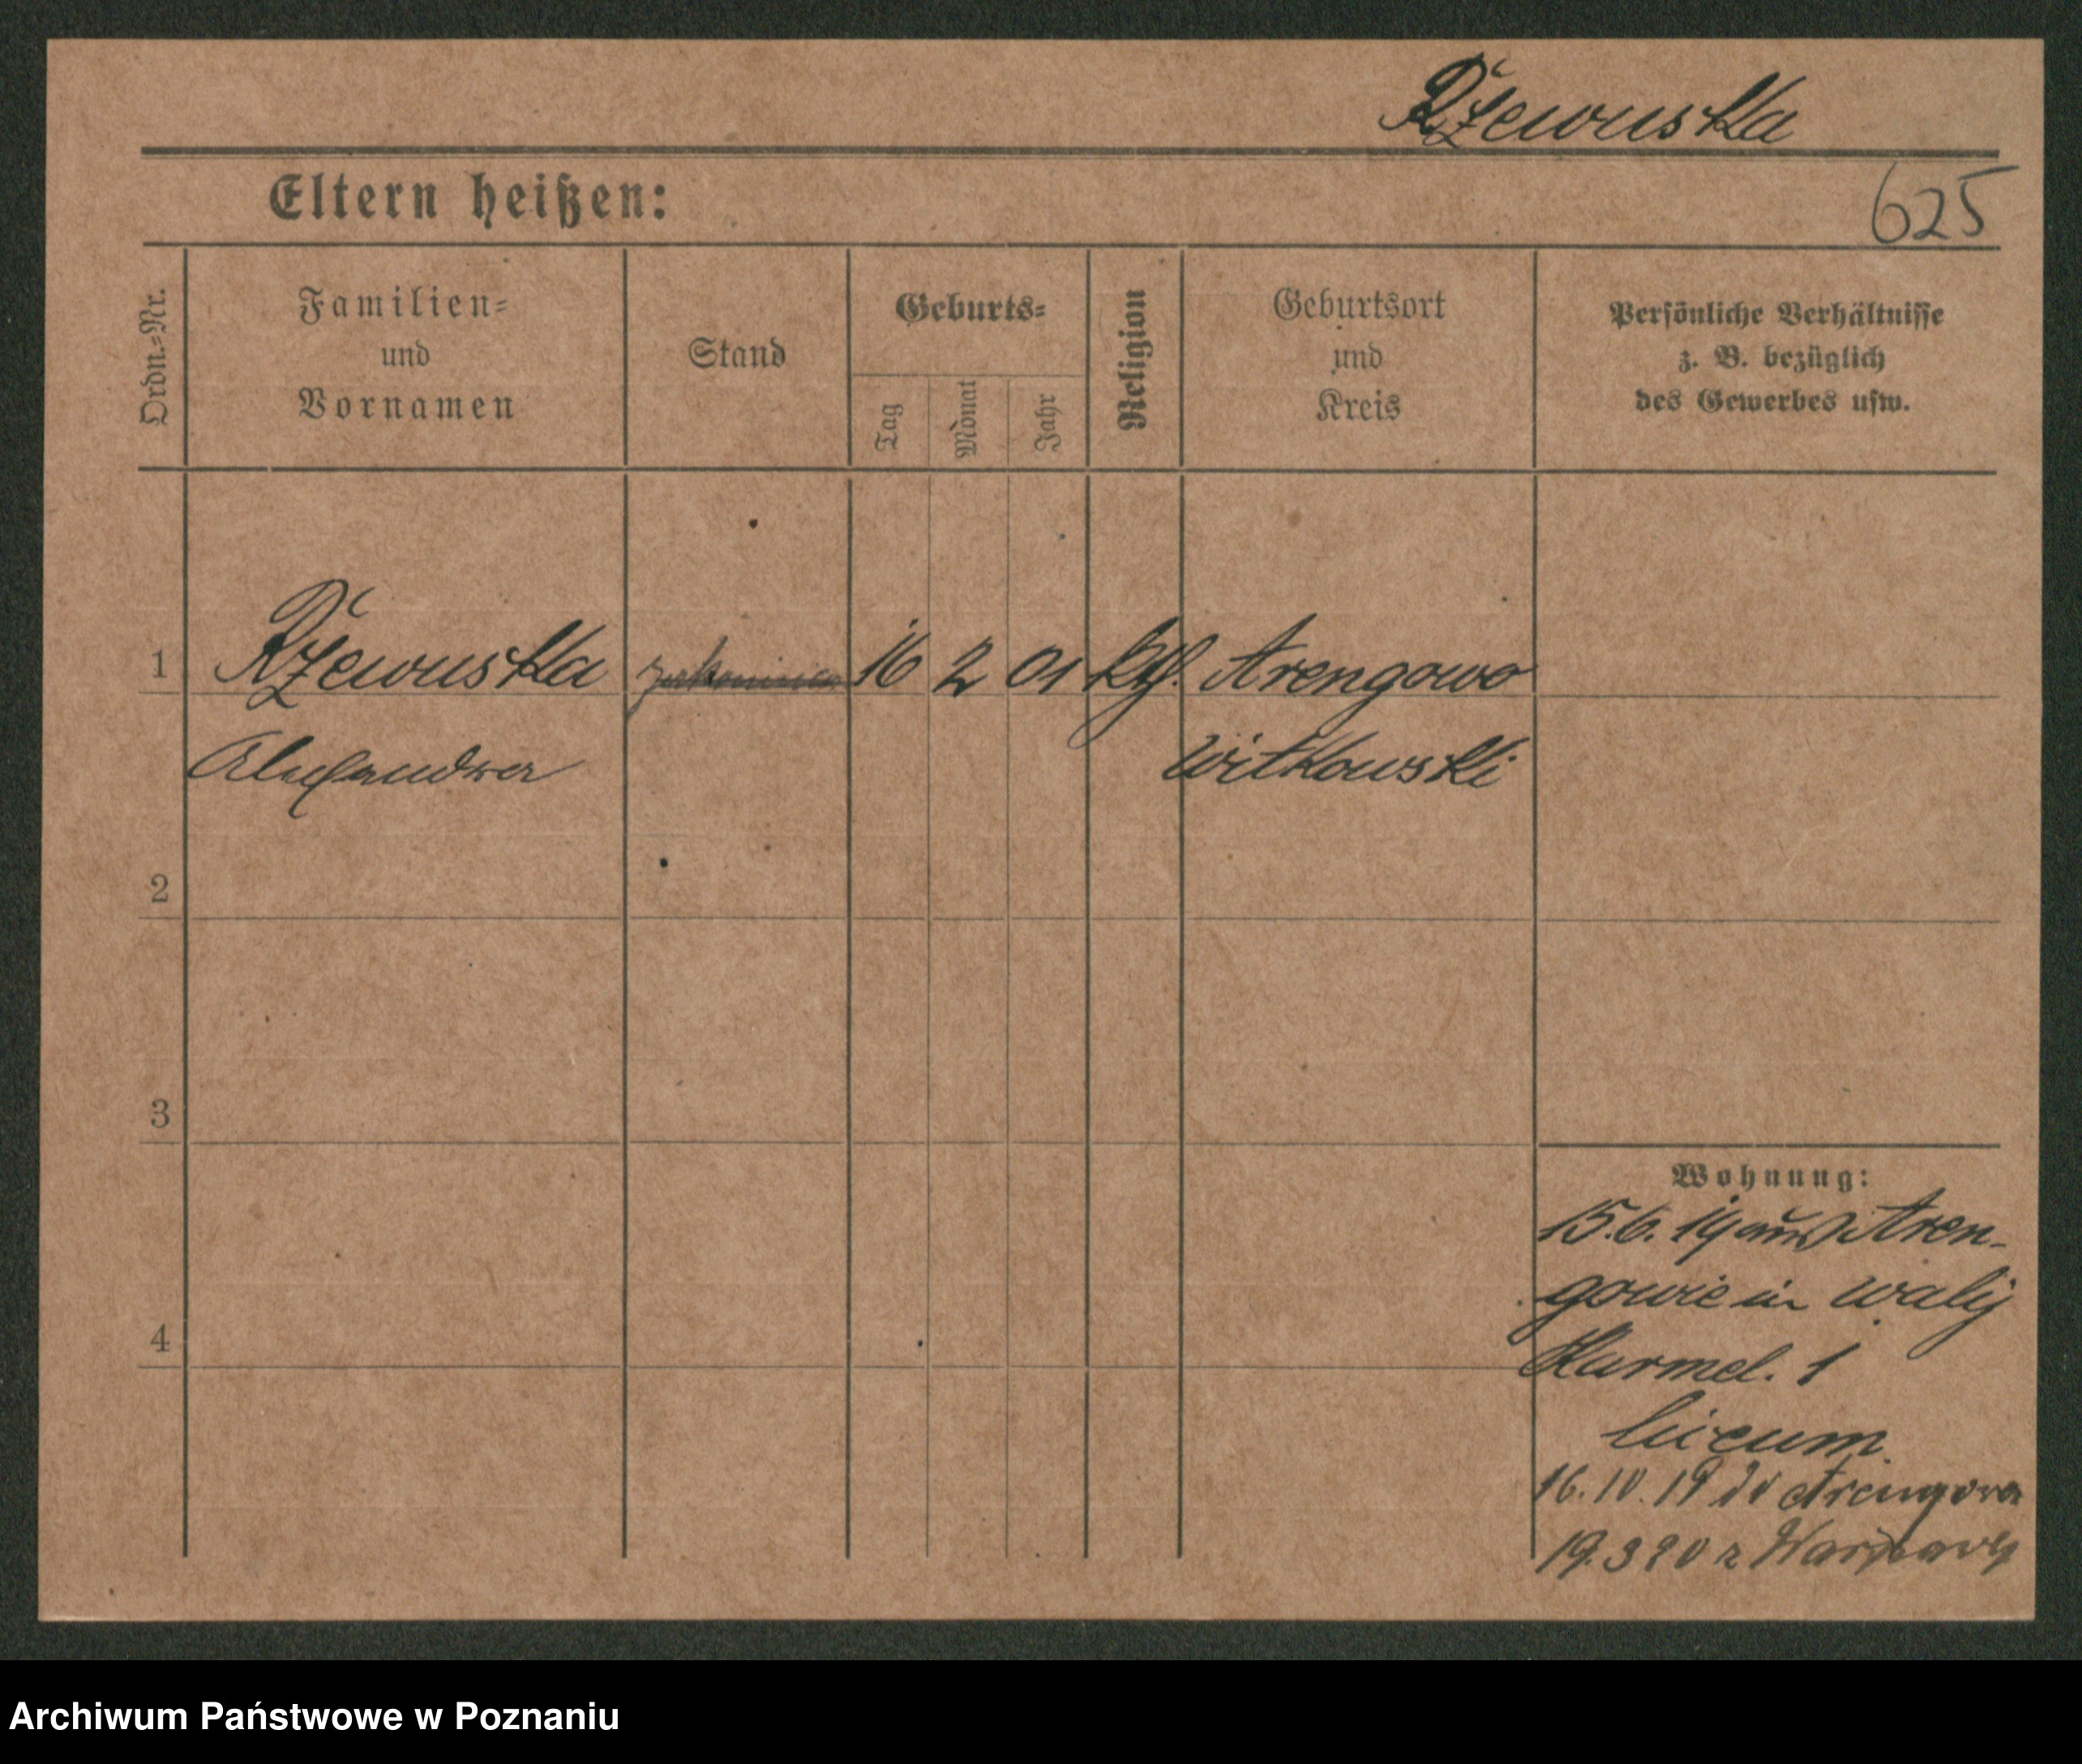 Rzewuska
625
Eltern heißen:
Ordn.-Nr.
Familien- und Vornamen
Stand
Geburts-
Tag
Monat
Jahr
Religion
Geburtsort und Kreis
Persönliche Verhältnisse
z. B. bezüglich
des Gewerbes usw.
1 Rzewuska 16 2 01 kth. Arengowo
Alexandra Witkowski
2
3
4
Wohnung:
15.6.19 aus Aren-
gowie in
Karmel. 1
liceum
16.10.19 do Arengowa
19.3 20 z Warszawy
Archiwum Państwowe w Poznaniu